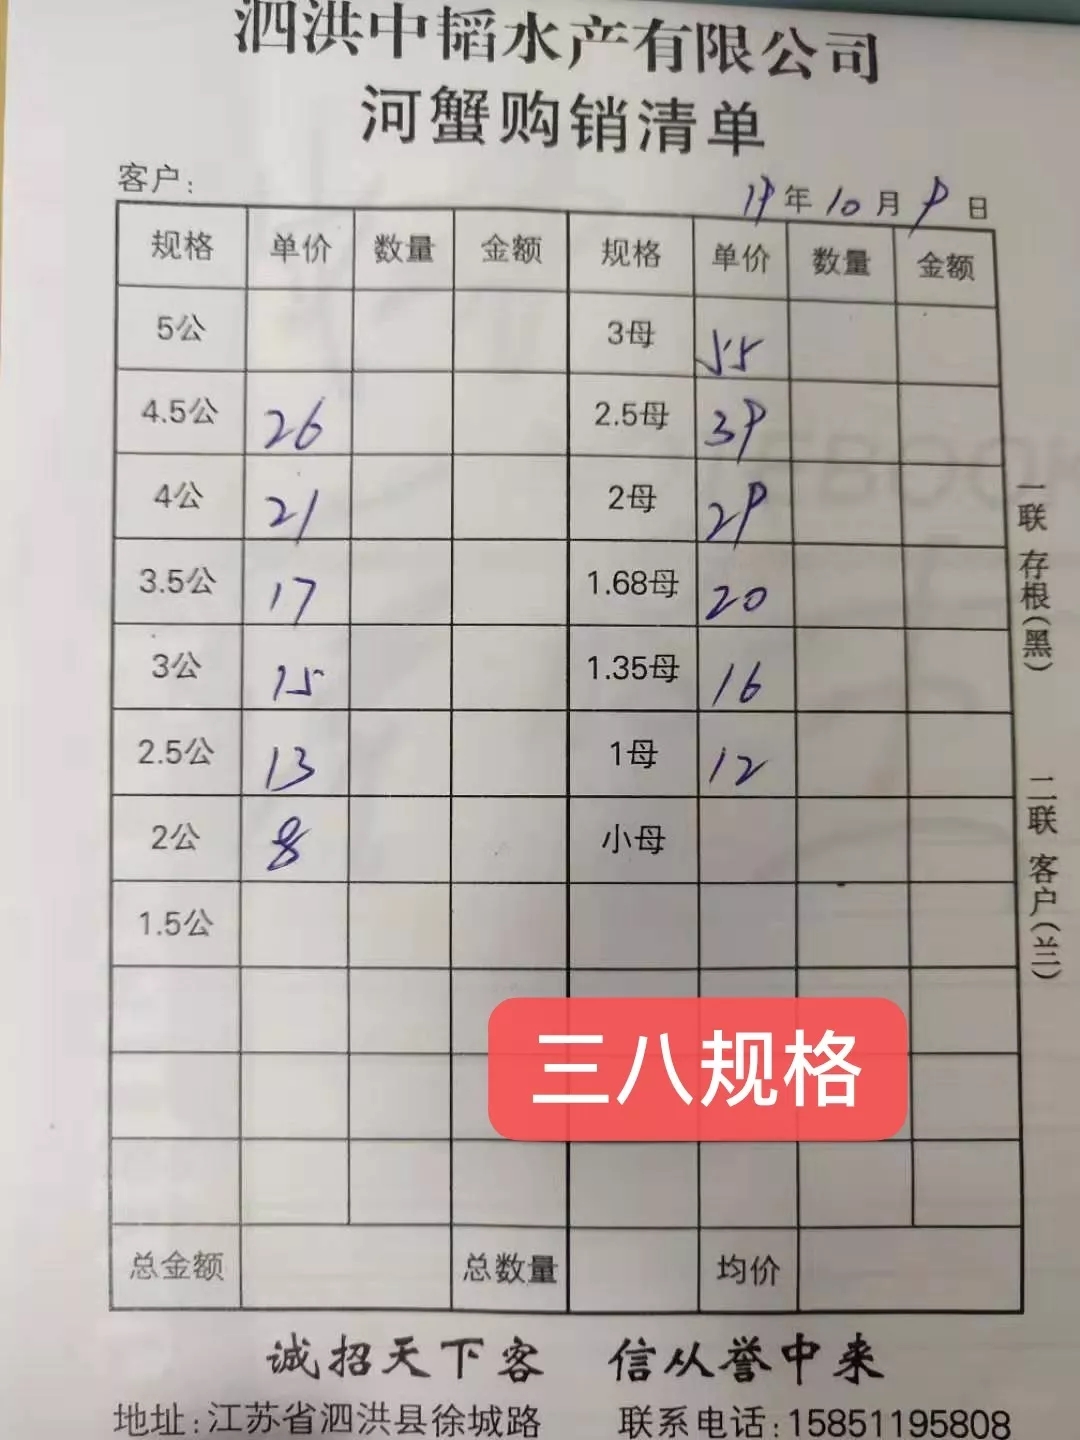 泗洪中韬水产有限公司
河蟹购销清单
客户: 19年10月9日
规格 单价 数量 金额 规格 单价 数量 金额
5公 3母 55
4.5公 26 2.5母 39
4公 21 2母 29
3.5公 17 1.68母 20
3公 15 1.35母 16
2.5公 13 1母 12
2公 8 小母
1.5公
三八规格
总金额 总数量 均价
一联 存根(黑)
二联 客户(兰)
诚招天下客 信从誉中来
地址:江苏省泗洪县徐城路 联系电话:15851195808